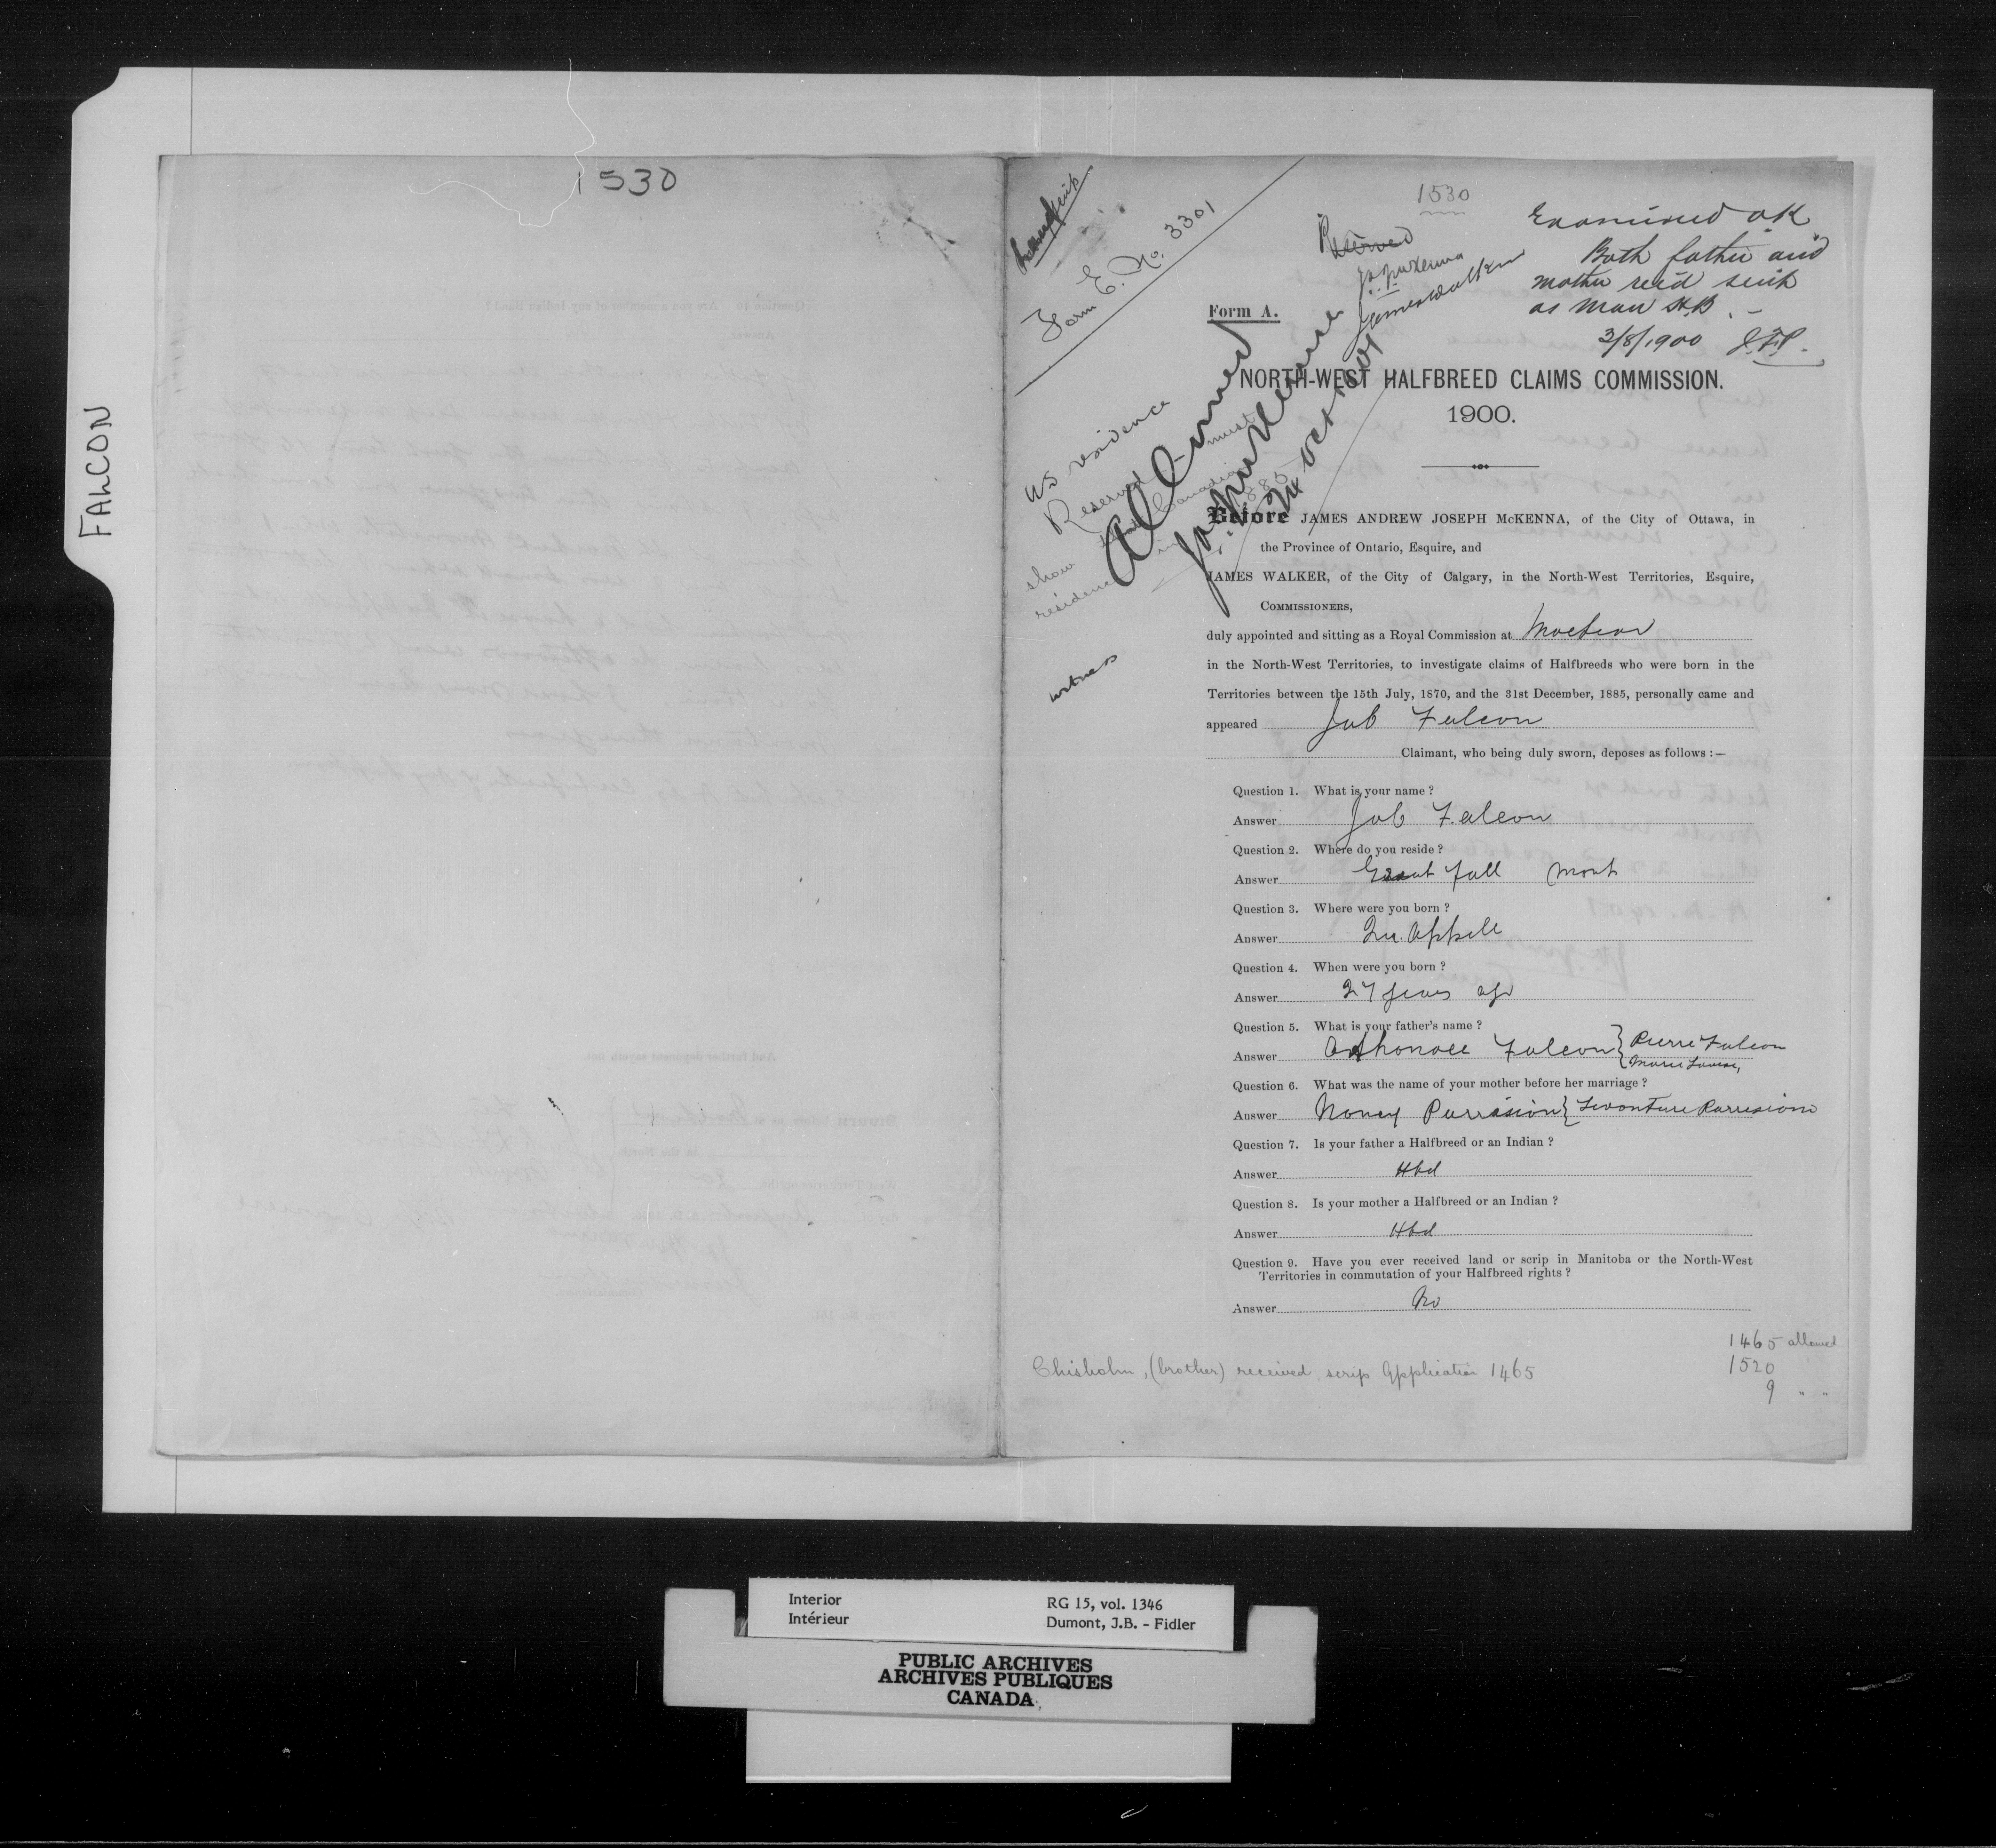 FALCON
1530
1530
Form E. No. 3301
Reserved
J.A.J. McKenna
James Walker
Examined OK
Both father and
mother rec'd scrip
as Man H.B. -
3/8/1900
Form A.
NORTH-WEST HALFBREED CLAIMS COMMISSION.
1900.
US residence
Reserved must
show Canadian
residence in 1885
Allowed
J.A.J. McKenna
24 Oct 1901
witness
Before JAMES ANDREW JOSEPH McKENNA, of the City of Ottawa, in
the Province of Ontario, Esquire, and
JAMES WALKER, of the City of Calgary, in the North-West Territories, Esquire,
COMMISSIONERS,
duly appointed and sitting as a Royal Commission at
in the North-West Territories, to investigate claims of Halfbreeds who were born in the
Territories between the 15th July, 1870, and the 31st December, 1885, personally came and
appeared Job Falcon
Claimant, who being duly sworn, deposes as follows :—
Question 1. What is your name ?
Answer Job Falcon
Question 2. Where do you reside ?
Answer Great Fall Mont
Question 3. Where were you born ?
Answer Qu. Appelle
Question 4. When were you born ?
Answer 27 years ago
Question 5. What is your father's name ?
Answer Falcon } Pierre Falcon
Marie Louise,
Question 6. What was the name of your mother before her marriage ?
Answer Nancy
Question 7. Is your father a Halfbreed or an Indian ?
Answer Hbd
Question 8. Is your mother a Halfbreed or an Indian ?
Answer Hbd
Question 9. Have you ever received land or scrip in Manitoba or the North-West
Territories in commutation of your Halfbreed rights ?
Answer No
1465 allowed
Chisholm, (brother) received scrip Application 1465
1520
9 " "
Interior
Intérieur
RG 15, vol. 1346
Dumont, J.B. - Fidler
PUBLIC ARCHIVES
ARCHIVES PUBLIQUES
CANADA